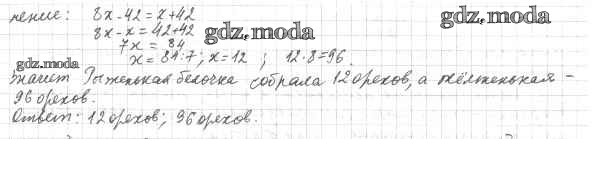 нение: 8x-42=x+42
8x-x=42+42
7x=84
x=84:7; x=12; 12·8=96.
Значит Рыженькая белочка собрала 12 орехов, а жёлтенькая -
96 орехов.
Ответ: 12 орехов; 96 орехов.
gdz.moda
gdz.moda
gdz.moda